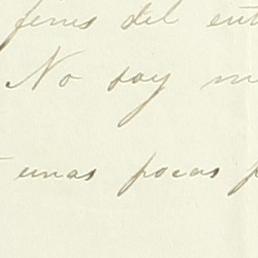 fines del
No soy
unas pocas